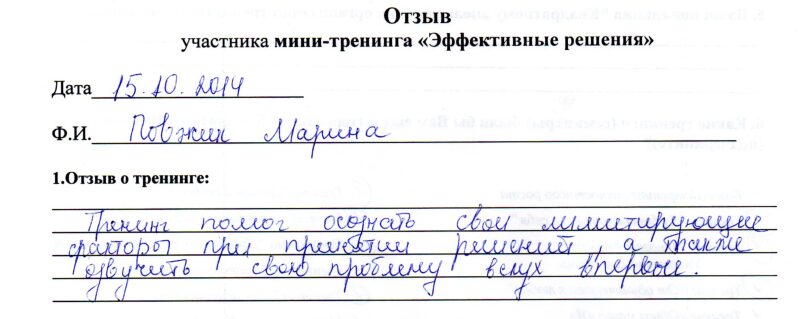 Отзыв
участника мини-тренинга «Эффективные решения»
Дата 15.10.2014
Ф.И. Повжик Марина
1.Отзыв о тренинге:
Тренинг помог осознать свои лимитирующие
факторы при принятии решений, а также
озвучить свою проблему вслух впервые.